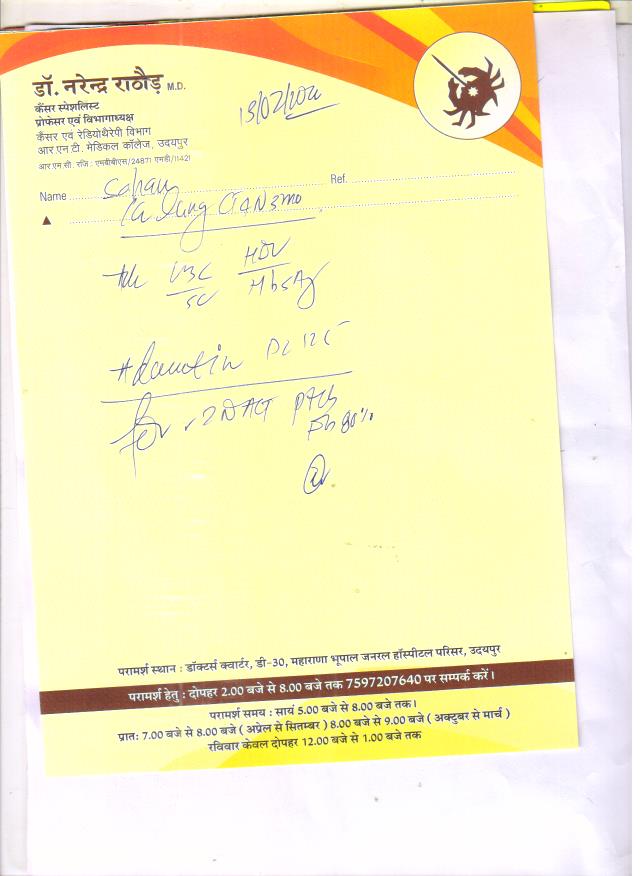 डॉ. नरेन्द्र राठौड़ M.D.
कैंसर स्पेशलिस्ट
प्रोफेसर एवं विभागाध्यक्ष
कैंसर एवं रेडियोथैरेपी विभाग
आर.एन.टी. मेडिकल कॉलेज, उदयपुर
आर.एम.सी. रजि : एमबीबीएस/24871 एमडी/11421
Name Ref.
Ca lung
HbsAg
for
परामर्श स्थान : डॉक्टर्स क्वार्टर, डी-30, महाराणा भूपाल जनरल हॉस्पीटल परिसर, उदयपुर
परामर्श हेतु : दोपहर 2.00 बजे से 8.00 बजे तक 7597207640 पर सम्पर्क करें।
परामर्श समय : सायं 5.00 बजे से 8.00 बजे तक।
प्रात: 7.00 बजे से 8.00 बजे ( अप्रेल से सितम्बर ) 8.00 बजे से 9.00 बजे ( अक्टुबर से मार्च )
रविवार केवल दोपहर 12.00 बजे से 1.00 बजे तक